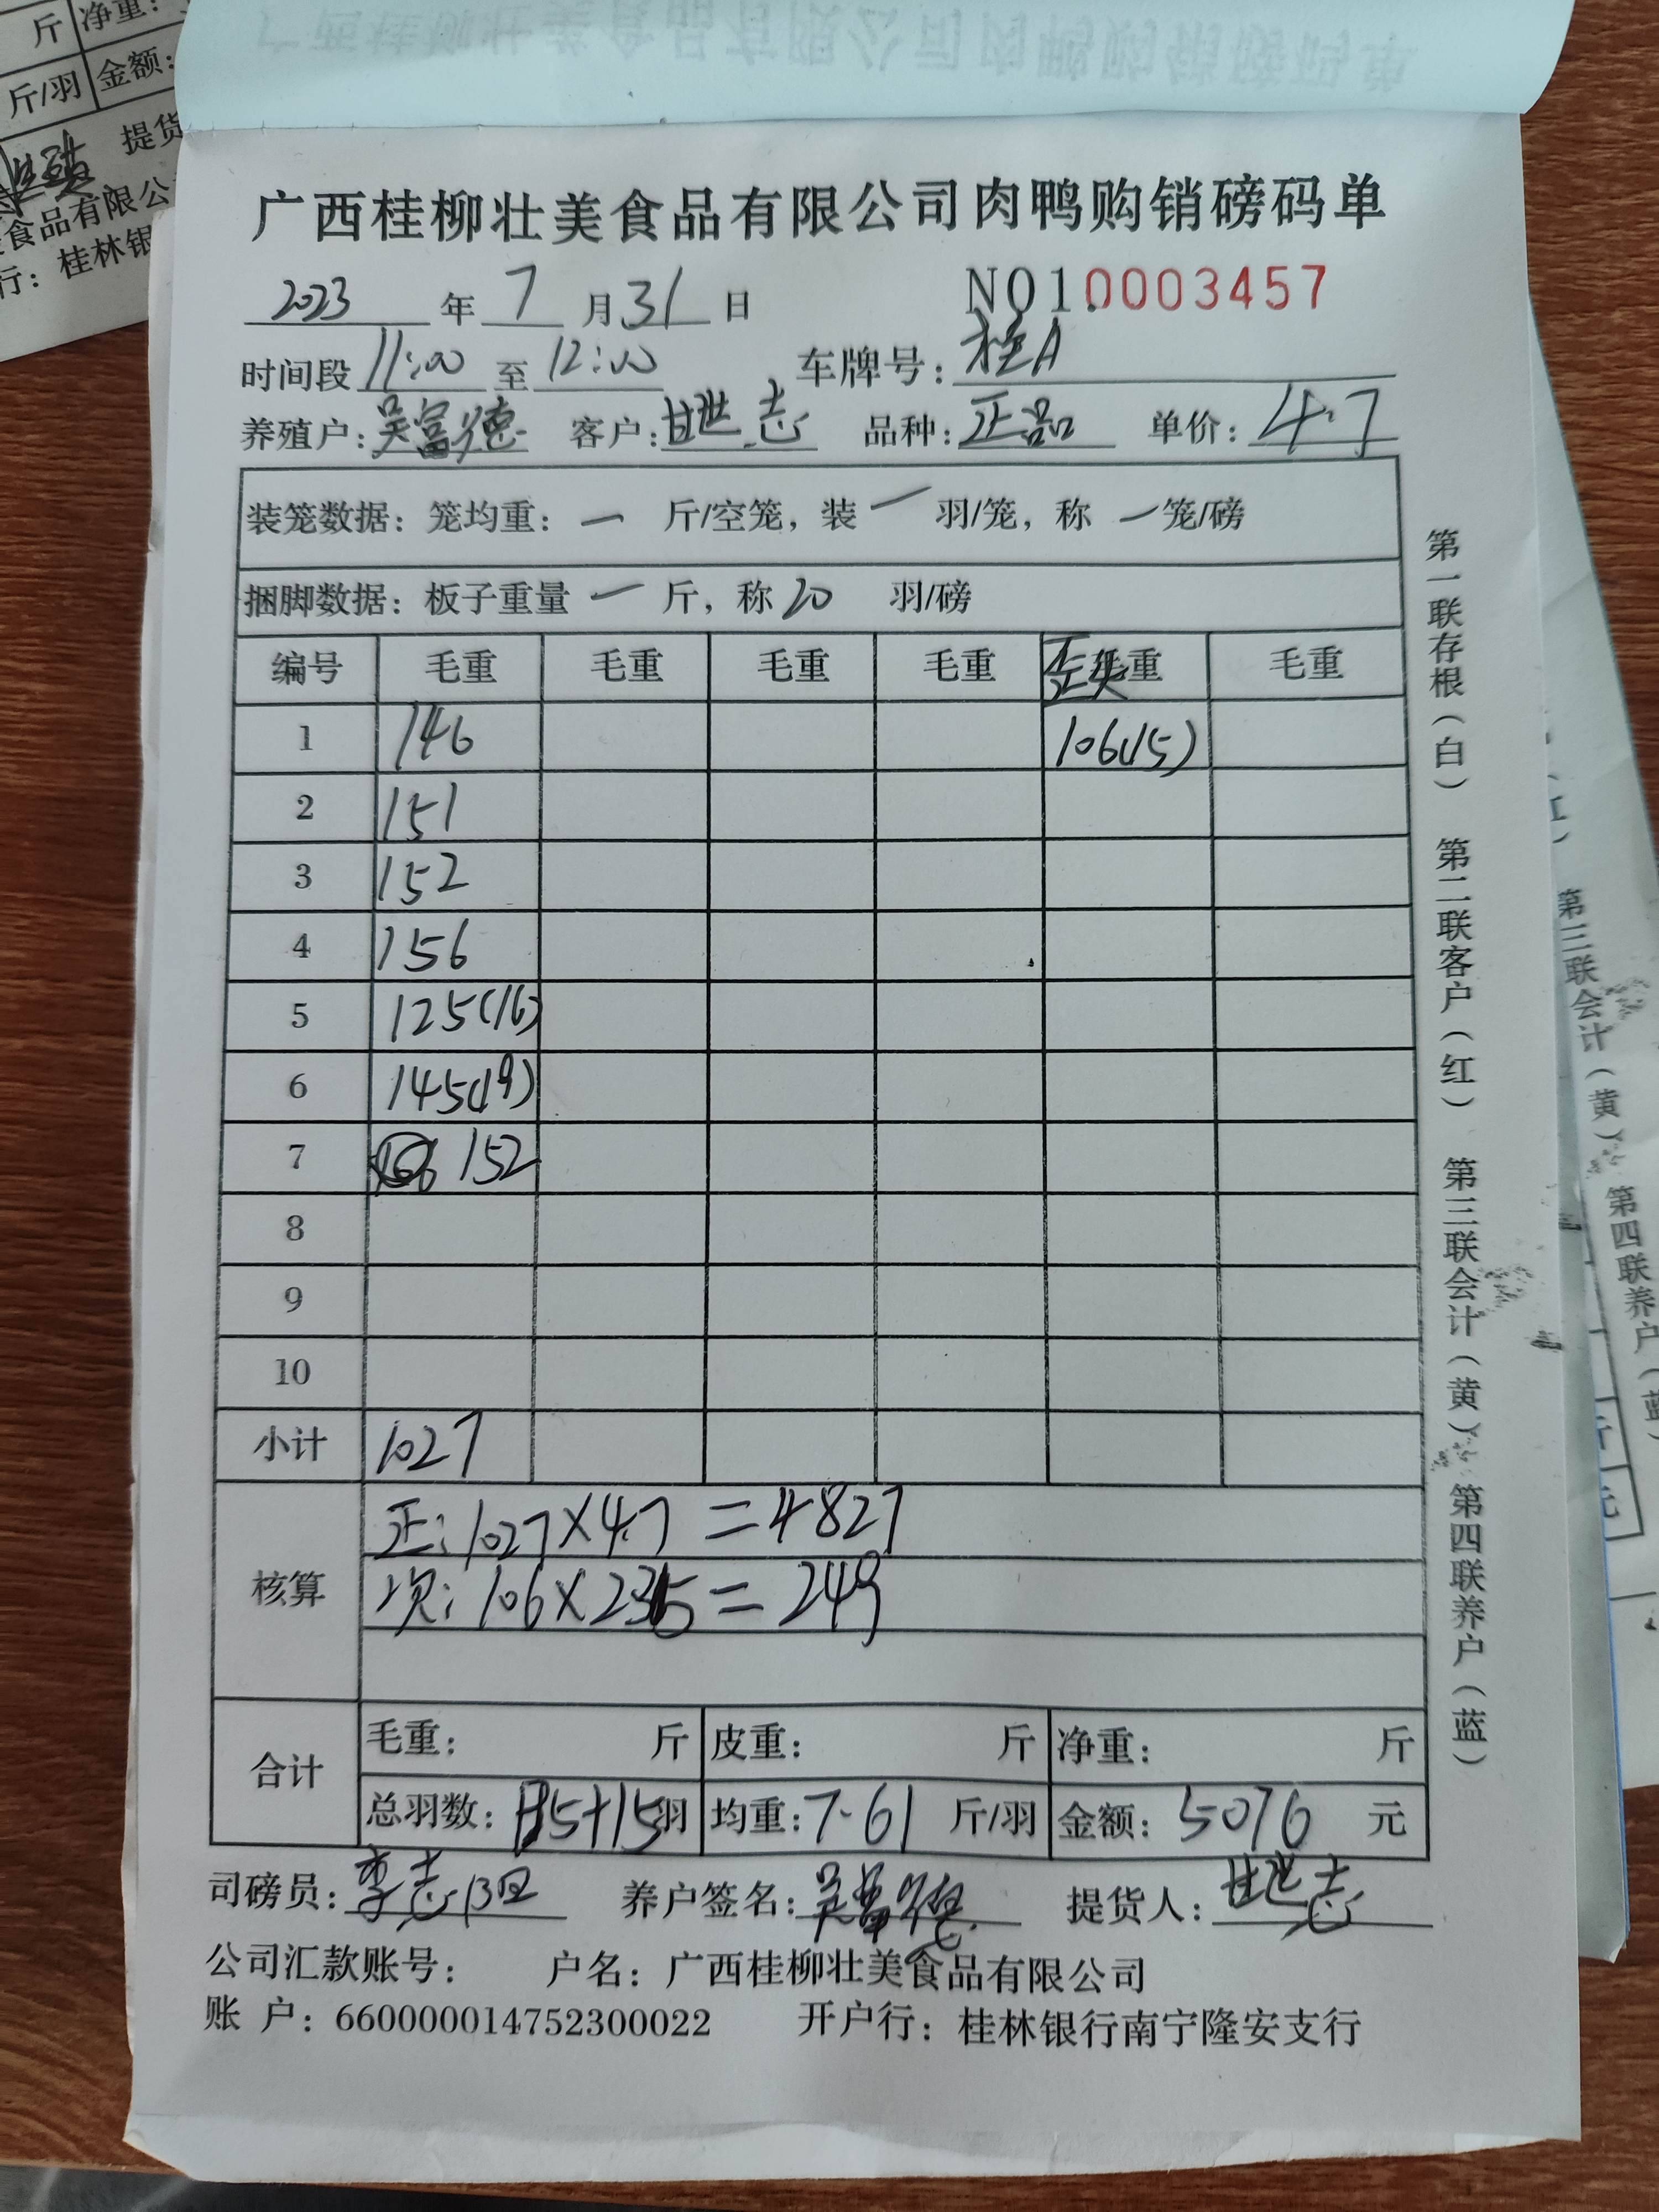 斤 净重:
斤/羽 金额:
提货
食品有限公
行: 桂林银
广西桂柳壮美食品有限公司肉鸭购销磅码单
2023 年 7 月 31 日 NO1.0003457
时间段 11:00 至 12:00 车牌号: 桂A
养殖户: 吴富德 客户: 甘世志 品种: 正品 单价: 4.7
装笼数据: 笼均重: — 斤/空笼, 装 — 羽/笼, 称 — 笼/磅
捆脚数据: 板子重量 — 斤, 称 20 羽/磅
编号 毛重 毛重 毛重 毛重 重 毛重
1 146 106(15)
2 151
3 152
4 156
5 125(16)
6 145(19)
7 152
8
9
10
小计 1027
核算 正: 1027×4.7=4827
次: 106×2.35=249
合计 毛重: 斤 皮重: 斤 净重: 斤
总羽数: 135+15 羽 均重: 7.61 斤/羽 金额: 5076 元
司磅员: 李志 养户签名: 吴富德 提货人: 甘世志
公司汇款账号: 户名: 广西桂柳壮美食品有限公司
账 户: 660000014752300022 开户行: 桂林银行南宁隆安支行
第一联存根(白) 第二联客户(红) 第三联会计(黄) 第四联养户(蓝)
第三联会计(黄) 第四联养户(蓝